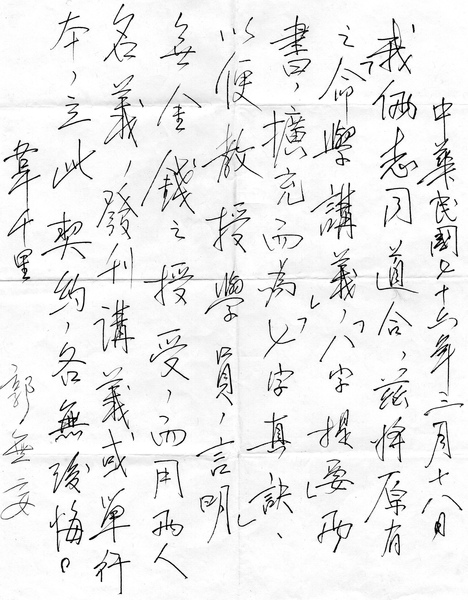 中華民國七十六年三月十八日
我倆志同道合，茲將原有
之「命學講義」「八字提要」兩
書，擴充而為「字真訣」、
以便教授學員，言明
無金錢之授受，而用兩人
名義，發刊講義或單行
本，立此契約，各無後悔。
韋千里
郭無